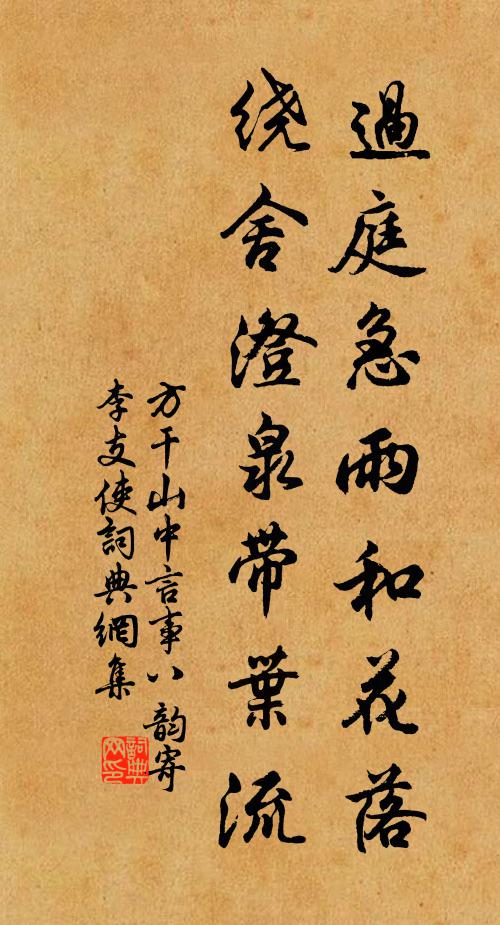 過庭急雨和花落
绕舍澄泉带葉流
方干山中言事八韵寄
李支使詞典網集
詞典
网印